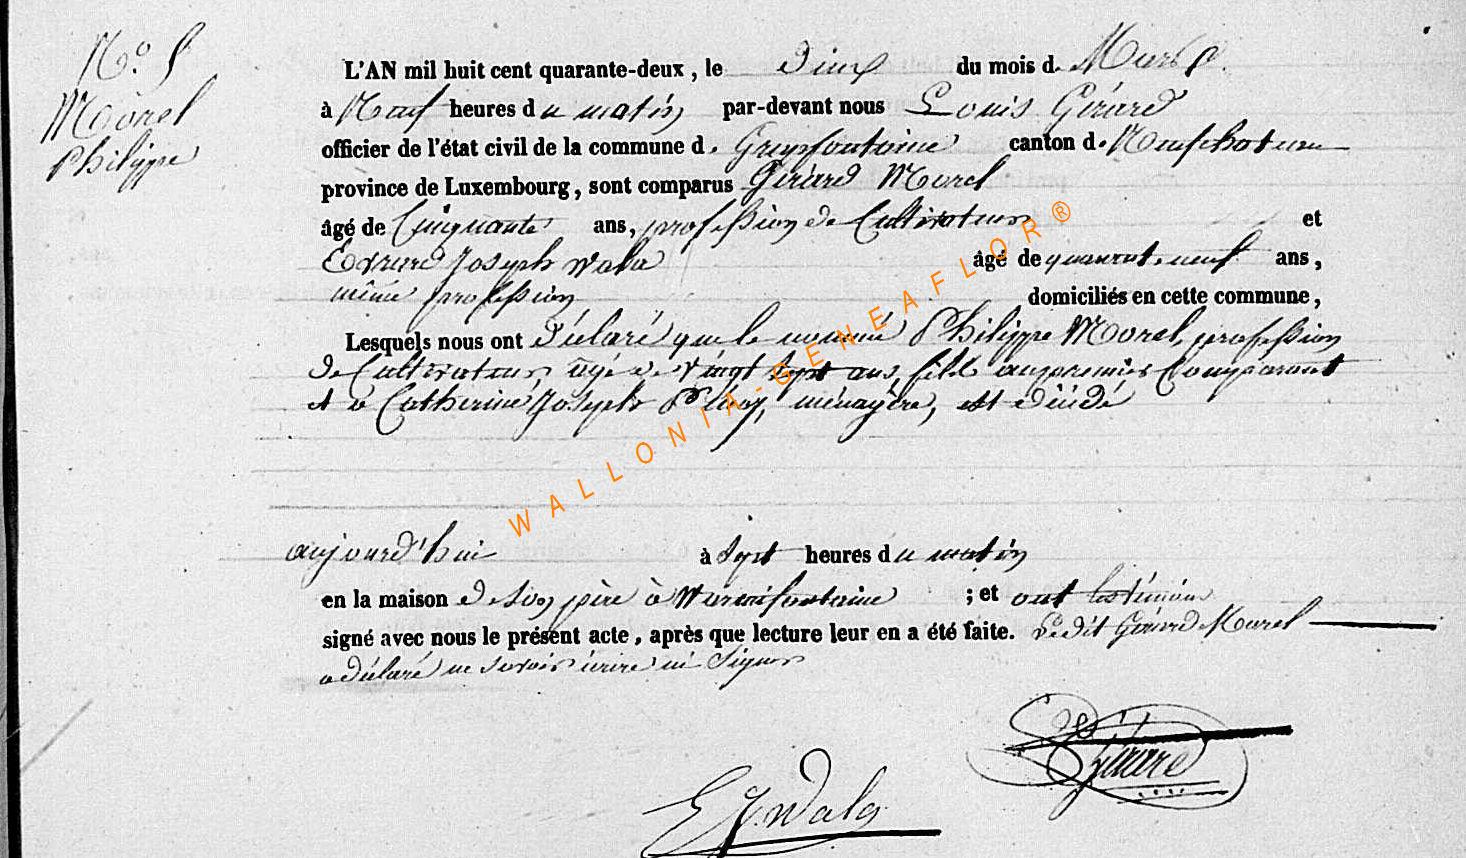 N.° 5
Morel
Philippe
L'AN mil huit cent quarante-deux, le deux du mois d. Mars
à Neuf heures du matin par-devant nous Louis Gérard
officier de l'état civil de la commune d. Grapfontaine canton d. Neufchateau
province de Luxembourg, sont comparus Gérard Morel
âgé de Cinquante ans, profession de Cultivateur et
Joseph Wala âgé de quarante neuf ans,
même profession domiciliés en cette commune,
Lesquels nous ont déclaré que le nommé Philippe Morel, profession
de Cultivateur, âgé de vingt sept ans, fils au premier Comparant
et à Catherine Joseph ménagère, est décédé
aujourd'hui à sept heures du matin
en la maison de son père à Warmifontaine ; et ont les témoins
signé avec nous le présent acte, après que lecture leur en a été faite. Ledit Gérard Morel
a déclaré ne savoir écrire ni signer
Gérard
E J. Wala
WALLONIA-GENEAFLOR®